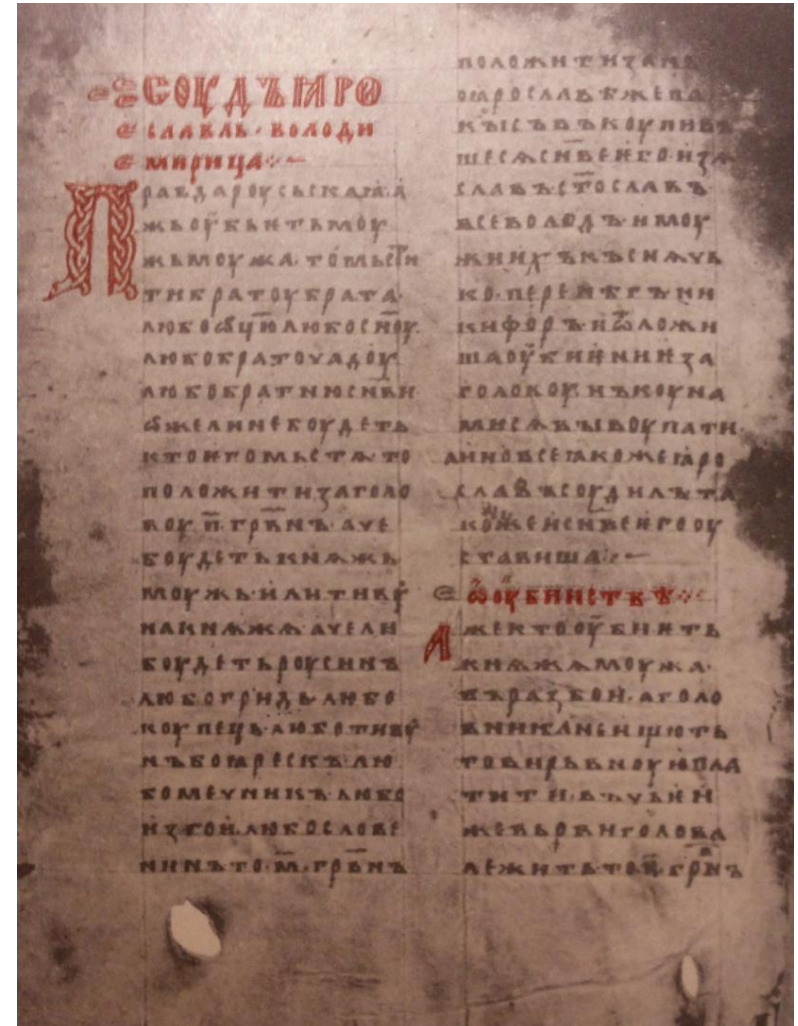 СОУДЪ ꙖРО
СЛАВЛЬ · ВОЛОДИ
МИРИЦА ·:·~
Правда роусьскаꙗ · а
жь оубьѥть моу
жь моужа · то мьсти
ти братоу брата ·
любо ѡц҃ю любо сн҃оу ·
любо братоучадоу ·
любо братню сн҃ви
ѡже ли не боудеть
кто ѥго мьстѧ то
положити за голо
воу · п҃ · грв҃нъ · аче
боудеть кнѧжь
моужь · или тиву
на кнѧжѧ · аче ли
боудеть роусинъ
любо гридь · любо
коупець · любо тиву
нъ боꙗрескъ · лю
бо мечникъ · любо
изгои · любо слове
нинъ то · м҃ · грв҃нъ
положити за нь
по ꙗрославѣ же па
кы съвъкоупивъ
шесѧ сн҃ве ѥго · изѧ
славъ · ст҃ославъ
всеволодъ · и моу
жи ихъ · къснѧчь
ко · перенѣгъ · ни
кифоръ · и ѿложи
ша оубиѥниѥ за
голову · нъ коуна
ми сѧ выкоупати ·
а ино все ꙗкоже ꙗро
славъ соудилъ та
коже и сн҃ве ѥго оу
ставиша ·:·~
ѡ оубииствѣ ·:·
Аже кто оубиѥть
кнѧжѧ моужа ·
въ разбои · а голо
вника не ищють
то вирьвноую пла
тити · въ чьѥи
же вьрви голова
лежить то · п҃ · грв҃нъ